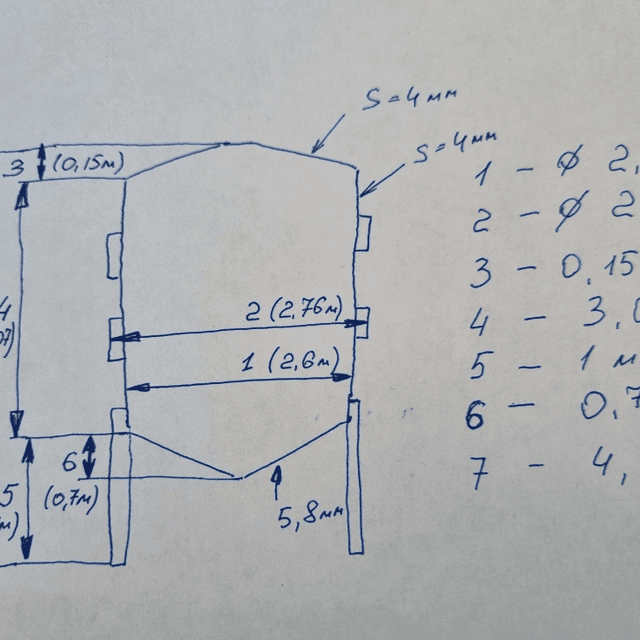 S=4мм
S=4мм
3 (0,15м)
4
07)
2 (2,76м)
1 (2,6м)
6
(0,7м)
5
м)
5,8мм
1 – ϕ 2,
2 – ϕ 2
3 – 0,15
4 – 3,0
5 – 1 м
6 – 0,7
7 – 4,